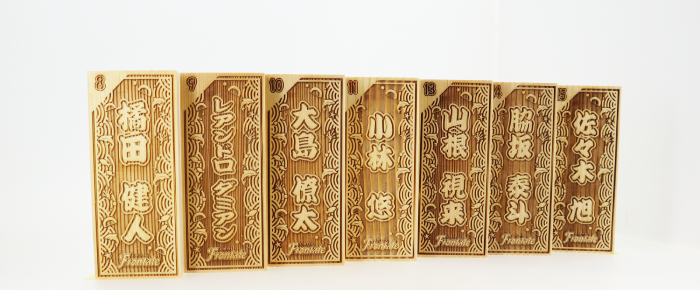 8
橘田 健人
Frontale
9
レアンドロ ダミアン
Frontale
10
大島 僚太
Frontale
11
小林 悠
Frontale
13
山根 視来
Frontale
14
脇坂 泰斗
Frontale
15
佐々木 旭
Frontale